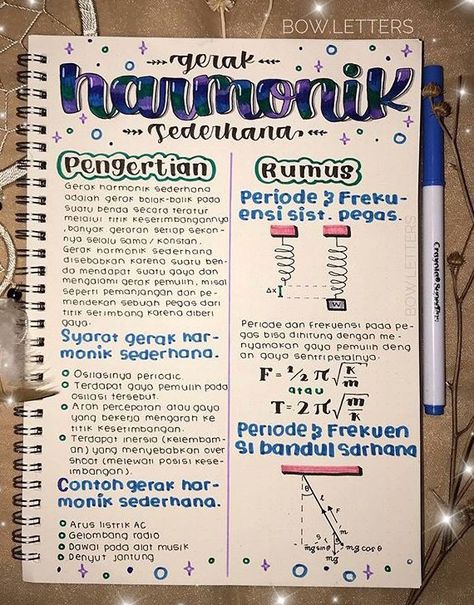 BOW.LETTERS
gerak
harmonik
sederhana
Pengertian
Gerak harmonik sederhana
adalah gerak bolak-balik pada
suatu benda secara teratur
melalui titik keseimbangannya
,banyak getaran setiap sekon-
nya selalu sama / konstan.
Gerak harmonik sederhana
disebabkan karena suatu ben-
da mendapat suatu gaya dan
mengalami gerak pemulih, misal
seperti pemanjangan dan pe-
mendekan sebuah pegas dari
titik seimbang karena diberi
gaya.
Syarat gerak har-
monik sederhana.
Osilasinya periodic.
Terdapat gaya pemulih pada
osilasi tersebut.
Arah percepatan atau gaya
yang bekerja mengarah ke
titik keseimbangan.
Terdapat inersia (kelembam-
an) yang menyebabkan over
shoot (melewati posisi kese-
imbangan).
Contoh gerak har-
monik sederhana.
Arus listrik AC
Gelombang radio
Dawai pada alat musik
Denyut jantung
Rumus
Periode & Freku-
ensi sist. pegas.
Δx
W
Periode dan Frekuensi pada pe-
gas bisa dihitung dengan me-
nyamakan gaya pemulih deng
an gaya sentripetalnya.
F = 1/2 π √k/m
atau
T = 2 π √m/k
Periode & Frekuen
si bandul sdrhana
θ
l
F
m
θ
mg sin θ
mg
mg cos θ
BOW.LETTERS